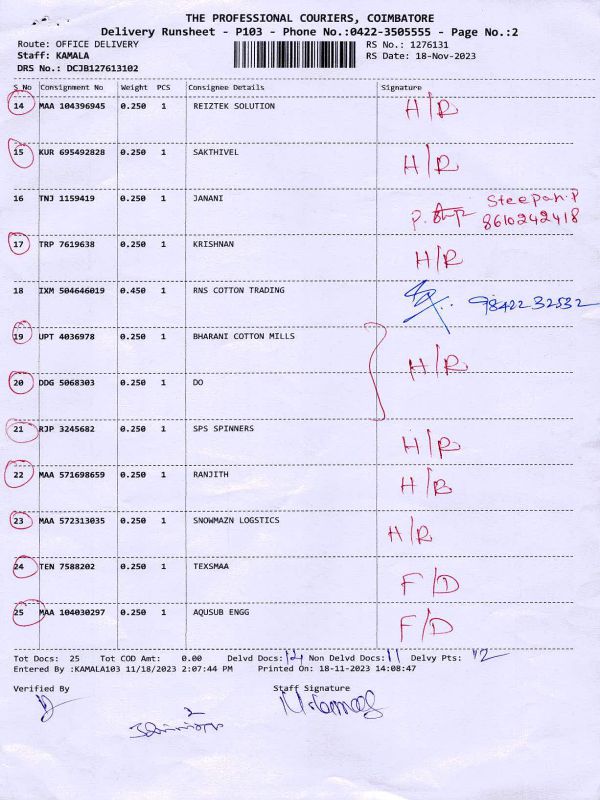 THE PROFESSIONAL COURIERS, COIMBATORE
Delivery Runsheet - P103 - Phone No.:0422-3505555 - Page No.:2
Route: OFFICE DELIVERY RS No.: 1276131
Staff: KAMALA RS Date: 18-Nov-2023
DRS No.: DCJB127613102
S No Consignment No Weight PCS Consignee Details Signature
14 MAA 104396945 0.250 1 REIZTEK SOLUTION H/R
15 KUR 695492828 0.250 1 SAKTHIVEL H/R
16 TNJ 1159419 0.250 1 JANANI Steepan.P
8610242418
17 TRP 7619638 0.250 1 KRISHNAN H/R
18 IXM 504646019 0.450 1 RNS COTTON TRADING 98422 32532
19 UPT 4036978 0.250 1 BHARANI COTTON MILLS H/R
20 DDG 5068303 0.250 1 DO
21 RJP 3245682 0.250 1 SPS SPINNERS H/R
22 MAA 571698659 0.250 1 RANJITH H/R
23 MAA 572313035 0.250 1 SNOWMAZN LOGSTICS H/R
24 TEN 7588202 0.250 1 TEXSMAA F/D
25 MAA 104030297 0.250 1 AQUSUB ENGG F/D
Tot Docs: 25 Tot COD Amt: 0.00 Delvd Docs: 14 Non Delvd Docs: 11 Delvy Pts: 12
Entered By :KAMALA103 11/18/2023 2:07:44 PM Printed On: 18-11-2023 14:08:47
Verified By Staff Signature